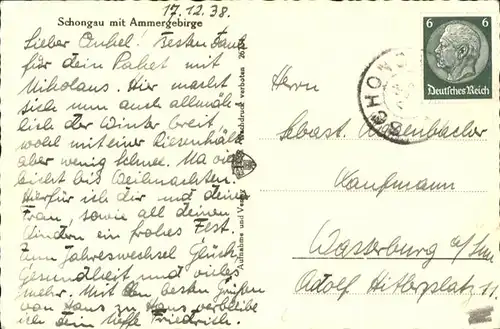 17.12.38.
Schongau mit Ammergebirge
Lieber Onkel! Besten Dank
für dein Paket mit
Nikolaus. Hier macht
sich nun auch allmäh-
lich der Winter breit,
wohl mit einer Riesenkälte
aber wenig Schnee. Na viel-
leicht bis Weihnachten.
Hierfür ich dir und deiner
Frau, sowie all deinen
Kindern ein frohes Fest.
Zum Jahreswechsel Glück,
Gesundheit und vieles
mehr. Mit den besten Grüßen
von Haus zu Haus verbleibe
ich dein Neffe Friedrich.
Aufnahme und Verlag
Nachdruck verboten
6 6
Deutsches Reich
SCHON
Herrn
Sebast.
Kaufmann
Wasserburg a/Inn
Adolf Hitlerplatz 11